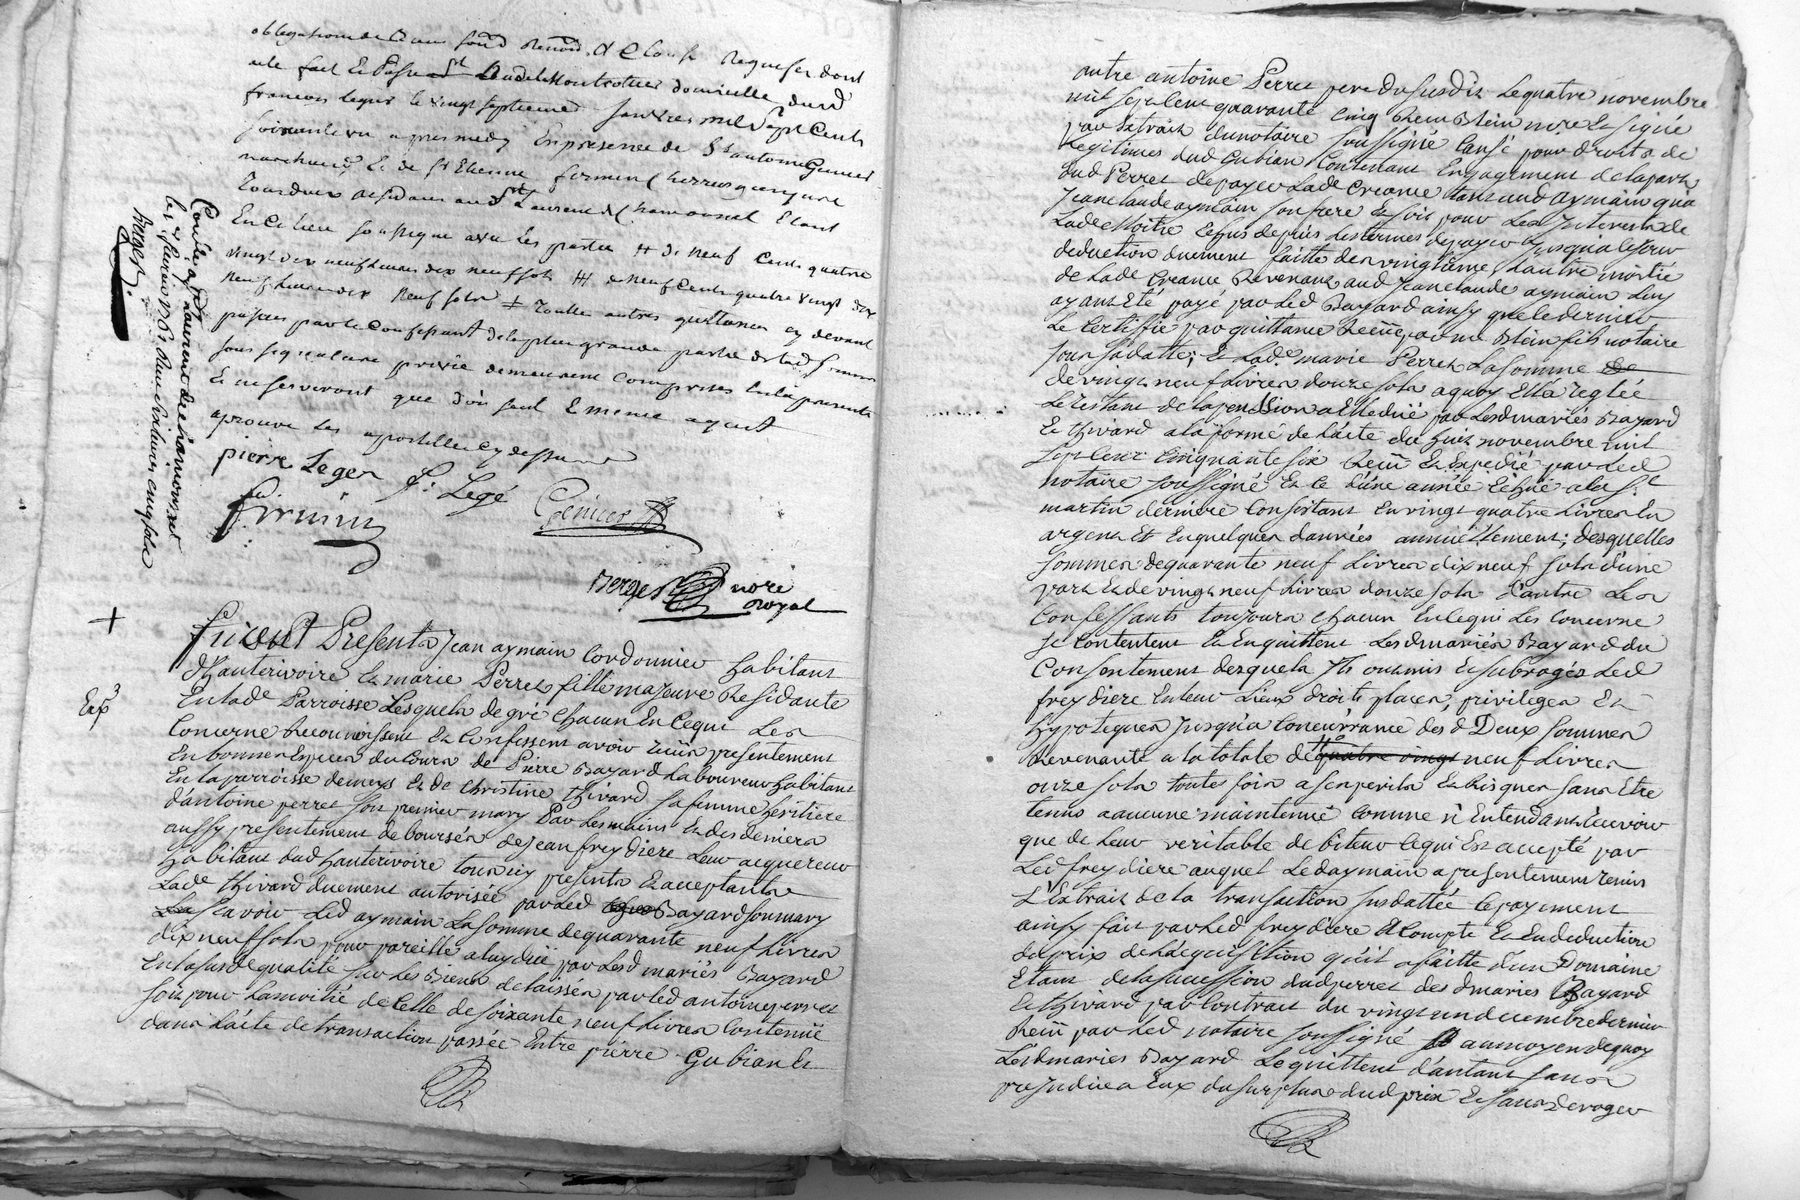 obligations
ete fait et Passé domicille dud
francois leger le vingt septieme Janvier mil sept cents
soixante un apres midy En presence de Sr antoine Genier
marchand, Et de Sr Etienne firmin
residans aud St Laurent de Chamousset Etant
En Ce lieu soussigné avec les parties # de neuf Cents quatre
vingt dix neuf livres dix neuf sols ## de neuf Cents quatre vingt dix
neuf livres dix neuf sols + Toutte autres quittances cy devant
passées par le Confessant de la plus grande partie de lad somme
sous signature privée demeurent Comprises En la presente
Et ne serviront que d'un seul Et meme aquit
aprouvé les apostilles cy dessus
pierre Leger f. Legé
firmin Genier
Berger nore
Royal
Controlé a St Laurent de chamousset
les fevrier 1761 Reçu
Berger
+
Expé
furent Presents Jean aymain Cordonnier habitant
d'hauterivoire Et marie Perret fille majeure Residante
En lade Parroisse Lesquels de gré Chacun En Ce qui Les
Concerne Reconnoissent Et Confessent avoir reçû presentement
En bonnes Especes du Cours de Pierre Bayard Laboureur habitant
En la parroisse de meys Et de Christine thivard sa femme heritiere
d'antoine perret son premier mary Par Les mains Et des deniers
aussy presentement deboursés de Jean freydiere Leur acquereur
habitant dud hauterivoire tous icy presents Et acceptants
Lade thivard duement autorisée par Led Bayard son mary
Scavoir Led aymain La somme de quarante neuf Livres
dix neuf sols pour pareille a luy düe par Lesd mariés Bayard
En la susde qualité sur Les Biens delaissés par Led antoine perret
soit pour La moitié de Celle de soixante neuf Livres Contenüe
dans L'acte de transaction passée Entre pierre Gubian Et
autre antoine Perret pere du susdit Le quatre novembre
mil sept Cent quarante Cinq Reçu Blein nore Et signé
par Extrait du notaire soussigné Causé pour droits de
Legitimes dud Gubian Contenant Engagement de la part
dud Perret de payer Lade Creance tant aud aymain qua
Jean Claude aymain son frere Et soit pour Les Interests de
Lade Moitié Echus depuis Les termes de payer Jusqua Ce Jour
deduction duement faitte des vingtiemes, L'autre moitié
de Lade Creance Revenant aud Jean Claude aymain Luy
ayant Eté payé par Led Bayard ainsy que Le dernier
Le Certiffie par quittance Reçüe par me Blein fils notaire
sous sa datte; Et Lade marie Perret La somme
de vingt neuf Livres douze sols a quoy Ella reglée
Le restant de La pension a Elle düe par Lesd mariés Bayard
Et thivard a la forme de L'acte du huit novembre mil
sept Cent Cinquante six Reçu Et Expedié par Led
notaire soussigné Et Ce L'une année Echüe a la St
martin derniere Consistant En vingt quatre Livres En
argent Et En quelques danrées annüellement; desquelles
sommes de quarante neuf Livres dix neuf sols d'une
part Et de vingt neuf Livres douze sols d'autre Les
Confessants toujours Chacun En Ce qui Les Concerne
Se Contentent Et En quittent Lesd mariés Bayard du
Consentement desquels Ils ont mis Et subrogés Led
freydiere En leur Lieux droits places, privileges Et
hypoteques Jusqua Concurrance desd Deux sommes
Revenante a la totale de quatre vingt neuf Livres
onze sols toute fois a ses perils Et Risques sans Etre
tenus a aucune maintenüe Comme n'Entendant recevoir
que de Leur veritable debiteur Ce qui Est accepté par
Led freydiere auquel Led aymain a presentement remis
L'Extrait de La transaction susdattée Le payement
ainsy fait par Led freydiere Acompte Et En deduction
du prix de L'acquisition qu'il a faitte d'un Domaine
Etant de La succession dud perret desd mariés Bayard
Et thivard par Contrait du vingt un decembre dernier
Reçu par Led notaire soussigné au moyen de quoy
Lesd mariés Bayard Le quittent d'autant sans
prejudice a Eux du surplus dud prix Et sans deroger